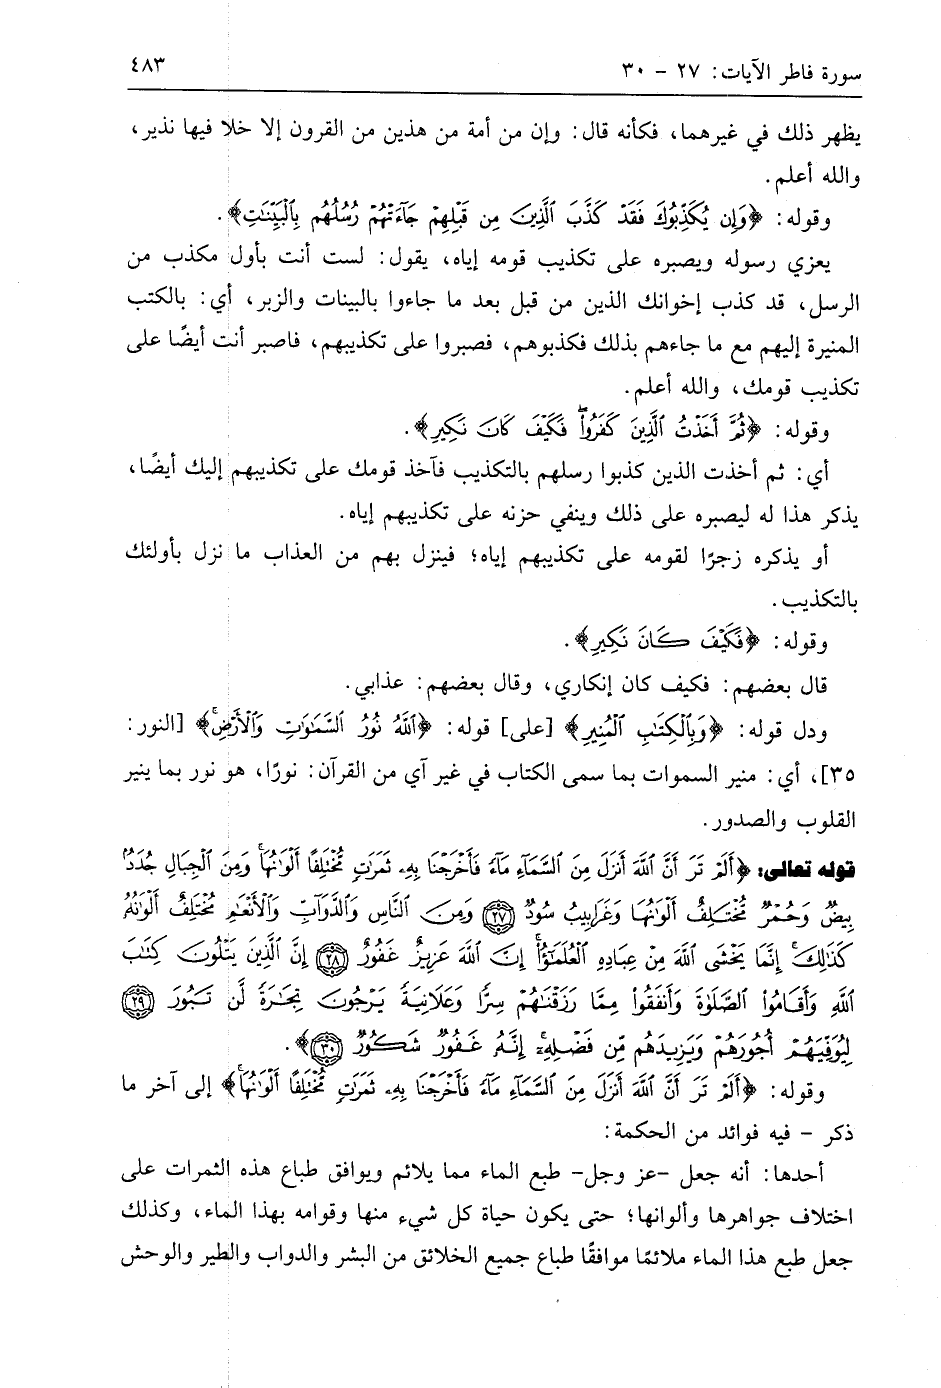 سورة فاطر الآيات: ٢٧ - ٣٠ ٤٨٣
يظهر ذلك في غيرهما، فكأنه قال: وإن من أمة من هذين من القرون إلا خلا فيها نذير،
والله أعلم.
وقوله: ﴿وَإِن يُكَذِّبُوكَ فَقَدْ كَذَّبَ ٱلَّذِينَ مِن قَبْلِهِمْ جَآءَتْهُمْ رُسُلُهُم بِٱلْبَيِّنَٰتِ﴾.
يعزي رسوله ويصبره على تكذيب قومه إياه، يقول: لست أنت بأول مكذب من
الرسل، قد كذب إخوانك الذين من قبل بعد ما جاءوا بالبينات والزبر، أي: بالكتب
المنيرة إليهم مع ما جاءهم بذلك فكذبوهم، فصبروا على تكذيبهم، فاصبر أنت أيضًا على
تكذيب قومك، والله أعلم.
وقوله: ﴿ثُمَّ أَخَذْتُ ٱلَّذِينَ كَفَرُوا۟ ۖ فَكَيْفَ كَانَ نَكِيرِ﴾.
أي: ثم أخذت الذين كذبوا رسلهم بالتكذيب فآخذ قومك على تكذيبهم إليك أيضًا،
يذكر هذا له ليصبره على ذلك وينفي حزنه على تكذيبهم إياه.
أو يذكره زجرًا لقومه على تكذيبهم إياه؛ فينزل بهم من العذاب ما نزل بأولئك
بالتكذيب.
وقوله: ﴿فَكَيْفَ كَانَ نَكِيرِ﴾.
قال بعضهم: فكيف كان إنكاري، وقال بعضهم: عذابي.
ودل قوله: ﴿وَبِٱلْكِتَٰبِ ٱلْمُنِيرِ﴾ [على] قوله: ﴿ٱللَّهُ نُورُ ٱلسَّمَٰوَٰتِ وَٱلْأَرْضِ ۚ﴾ [النور:
٣٥]، أي: منير السموات بما سمى الكتاب في غير آي من القرآن: نورًا، هو نور بما ينير
القلوب والصدور.
قوله تعالى: ﴿أَلَمْ تَرَ أَنَّ ٱللَّهَ أَنزَلَ مِنَ ٱلسَّمَآءِ مَآءً فَأَخْرَجْنَا بِهِۦ ثَمَرَٰتٍ مُّخْتَلِفًا أَلْوَٰنُهَا ۚ وَمِنَ ٱلْجِبَالِ جُدَدٌۢ
بِيضٌ وَحُمْرٌ مُّخْتَلِفٌ أَلْوَٰنُهَا وَغَرَابِيبُ سُودٌ ۝٢٧ وَمِنَ ٱلنَّاسِ وَٱلدَّوَآبِّ وَٱلْأَنْعَٰمِ مُخْتَلِفٌ أَلْوَٰنُهُۥ
كَذَٰلِكَ ۗ إِنَّمَا يَخْشَى ٱللَّهَ مِنْ عِبَادِهِ ٱلْعُلَمَٰٓؤُا۟ ۗ إِنَّ ٱللَّهَ عَزِيزٌ غَفُورٌ ۝٢٨ إِنَّ ٱلَّذِينَ يَتْلُونَ كِتَٰبَ
ٱللَّهِ وَأَقَامُوا۟ ٱلصَّلَوٰةَ وَأَنفَقُوا۟ مِمَّا رَزَقْنَٰهُمْ سِرًّا وَعَلَانِيَةً يَرْجُونَ تِجَٰرَةً لَّن تَبُورَ ۝٢٩
لِيُوَفِّيَهُمْ أُجُورَهُمْ وَيَزِيدَهُم مِّن فَضْلِهِۦٓ ۚ إِنَّهُۥ غَفُورٌ شَكُورٌ ۝٣٠﴾.
وقوله: ﴿أَلَمْ تَرَ أَنَّ ٱللَّهَ أَنزَلَ مِنَ ٱلسَّمَآءِ مَآءً فَأَخْرَجْنَا بِهِۦ ثَمَرَٰتٍ مُّخْتَلِفًا أَلْوَٰنُهَا ۚ﴾ إلى آخر ما
ذكر - فيه فوائد من الحكمة:
أحدها: أنه جعل -عز وجل- طبع الماء مما يلائم ويوافق طباع هذه الثمرات على
اختلاف جواهرها وألوانها؛ حتى يكون حياة كل شيء منها وقوامه بهذا الماء، وكذلك
جعل طبع هذا الماء ملائمًا موافقًا طباع جميع الخلائق من البشر والدواب والطير والوحش